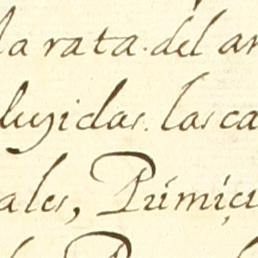 la rata del an
luyidas. las ca
ales, Primiçi